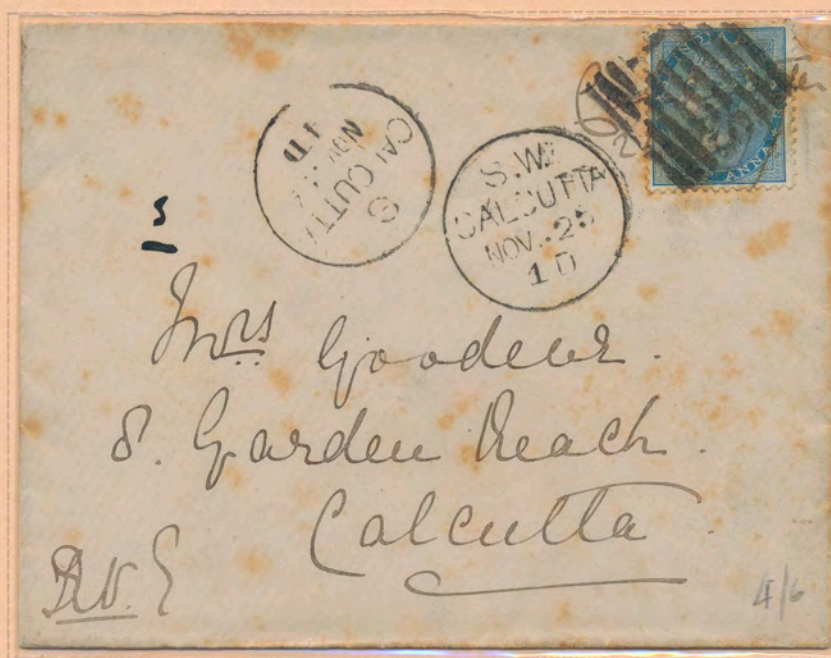 CALCUTTA
NOV
S
S.W.
CALCUTTA
NOV. 25
1 D
ANNA
s
Mrs Goodeve.
8. Garden Reach.
Calcutta
4/6